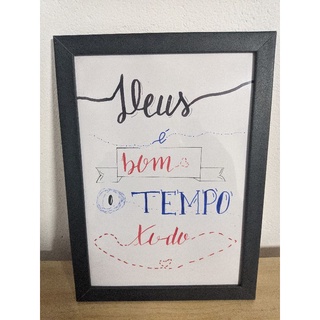 Deus
é
bom
O TEMPO
todo